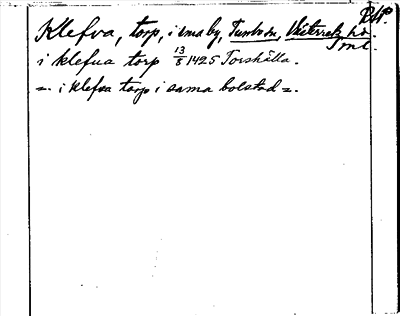 Klefva, torp, i sma by, Tumbo sn, Västerrek. hd.
i klefua torp 13/8 1425 Torshälla.
=. i klefua torp i sama bolstad =.